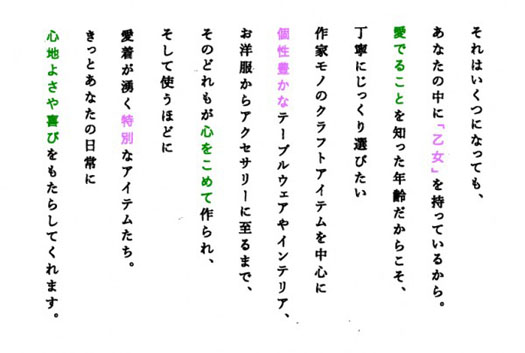 それはいくつになっても、
あなたの中に「乙女」を持っているから。
愛でることを知った年齢だからこそ、
丁寧にじっくり選びたい
作家モノのクラフトアイテムを中心に
個性豊かなテーブルウェアやインテリア、
お洋服からアクセサリーに至るまで、
そのどれもが心をこめて作られ、
そして使うほどに
愛着が湧く特別なアイテムたち。
きっとあなたの日常に
心地よさや喜びをもたらしてくれます。